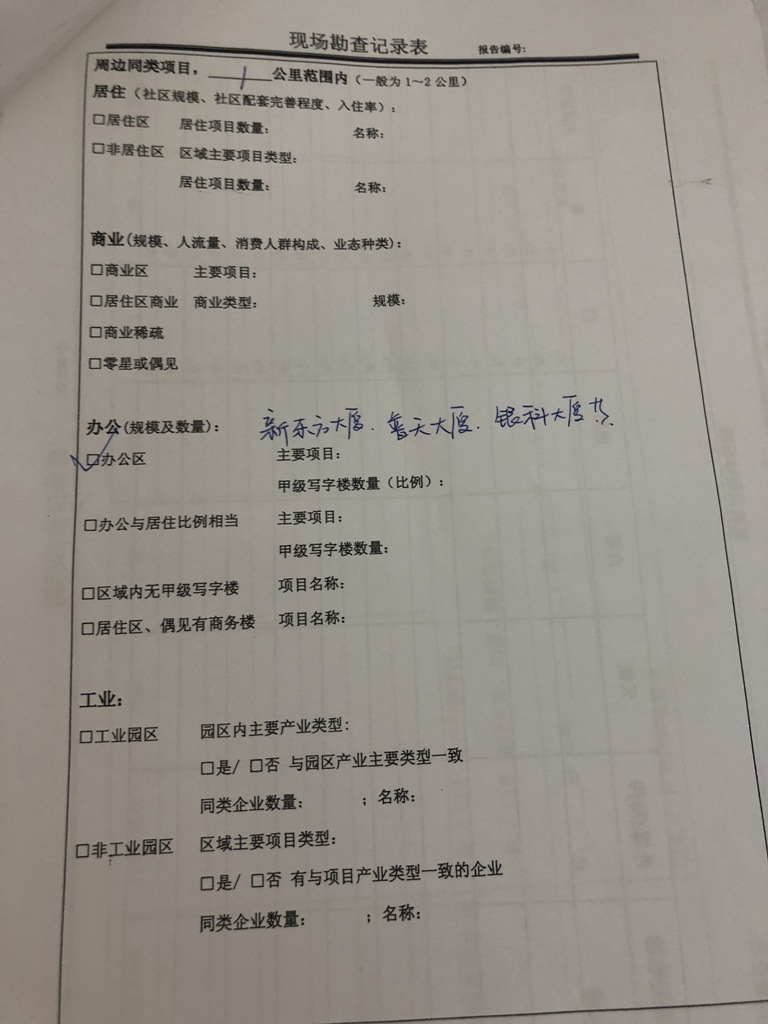 现场勘查记录表 报告编号:
周边同类项目，1公里范围内（一般为1～2公里）
居住（社区规模、社区配套完善程度、入住率）:
□居住区 居住项目数量: 名称:
□非居住区 区域主要项目类型:
居住项目数量: 名称:
商业(规模、人流量、消费人群构成、业态种类):
□商业区 主要项目:
□居住区商业 商业类型: 规模:
□商业稀疏
□零星或偶见
办公(规模及数量): 新东方大厦. 普天大厦. 银科大厦等
☑办公区 主要项目:
甲级写字楼数量(比例):
□办公与居住比例相当 主要项目:
甲级写字楼数量:
□区域内无甲级写字楼 项目名称:
□居住区、偶见有商务楼 项目名称:
工业:
□工业园区 园区内主要产业类型:
□是/ □否 与园区产业主要类型一致
同类企业数量: ；名称:
□非工业园区 区域主要项目类型:
□是/ □否 有与项目产业类型一致的企业
同类企业数量: ；名称: